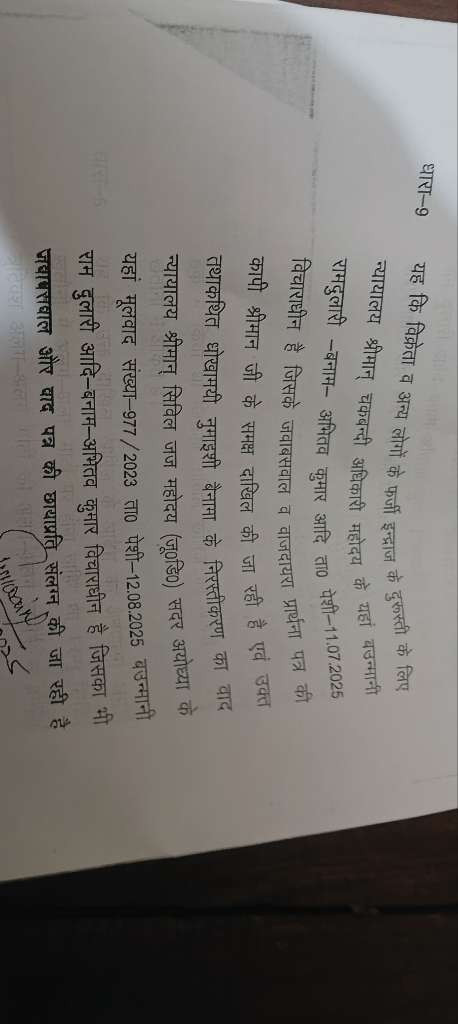 धारा–9
यह कि विक्रेता व अन्य लोगों के फर्जी इन्द्राज के दुरूस्ती के लिए
न्यायालय श्रीमान् चकबन्दी अधिकारी महोदय के यहां बउन्मानी
रामदुलारी –बनाम– अभितव कुमार आदि ता0 पेशी–11.07.2025
विचाराधीन है जिसके जवाबसवाल व वाजदायरा प्रार्थना पत्र की
कापी श्रीमान जी के समक्ष दाखिल की जा रही है एवं उक्त
तथाकथित धोखामयी नुमाइशी बैनामा के निरस्तीकरण का वाद
न्यायालय श्रीमान् सिविल जज महोदय (जू0डि0) सदर अयोध्या के
यहां मूलवाद संख्या–977/2023 ता0 पेशी–12.08.2025 बउन्मानी
राम दुलारी आदि–बनाम–अभितव कुमार विचाराधीन है जिसका भी
जवाबसवाल और वाद पत्र की छायाप्रति संलग्न की जा रही है